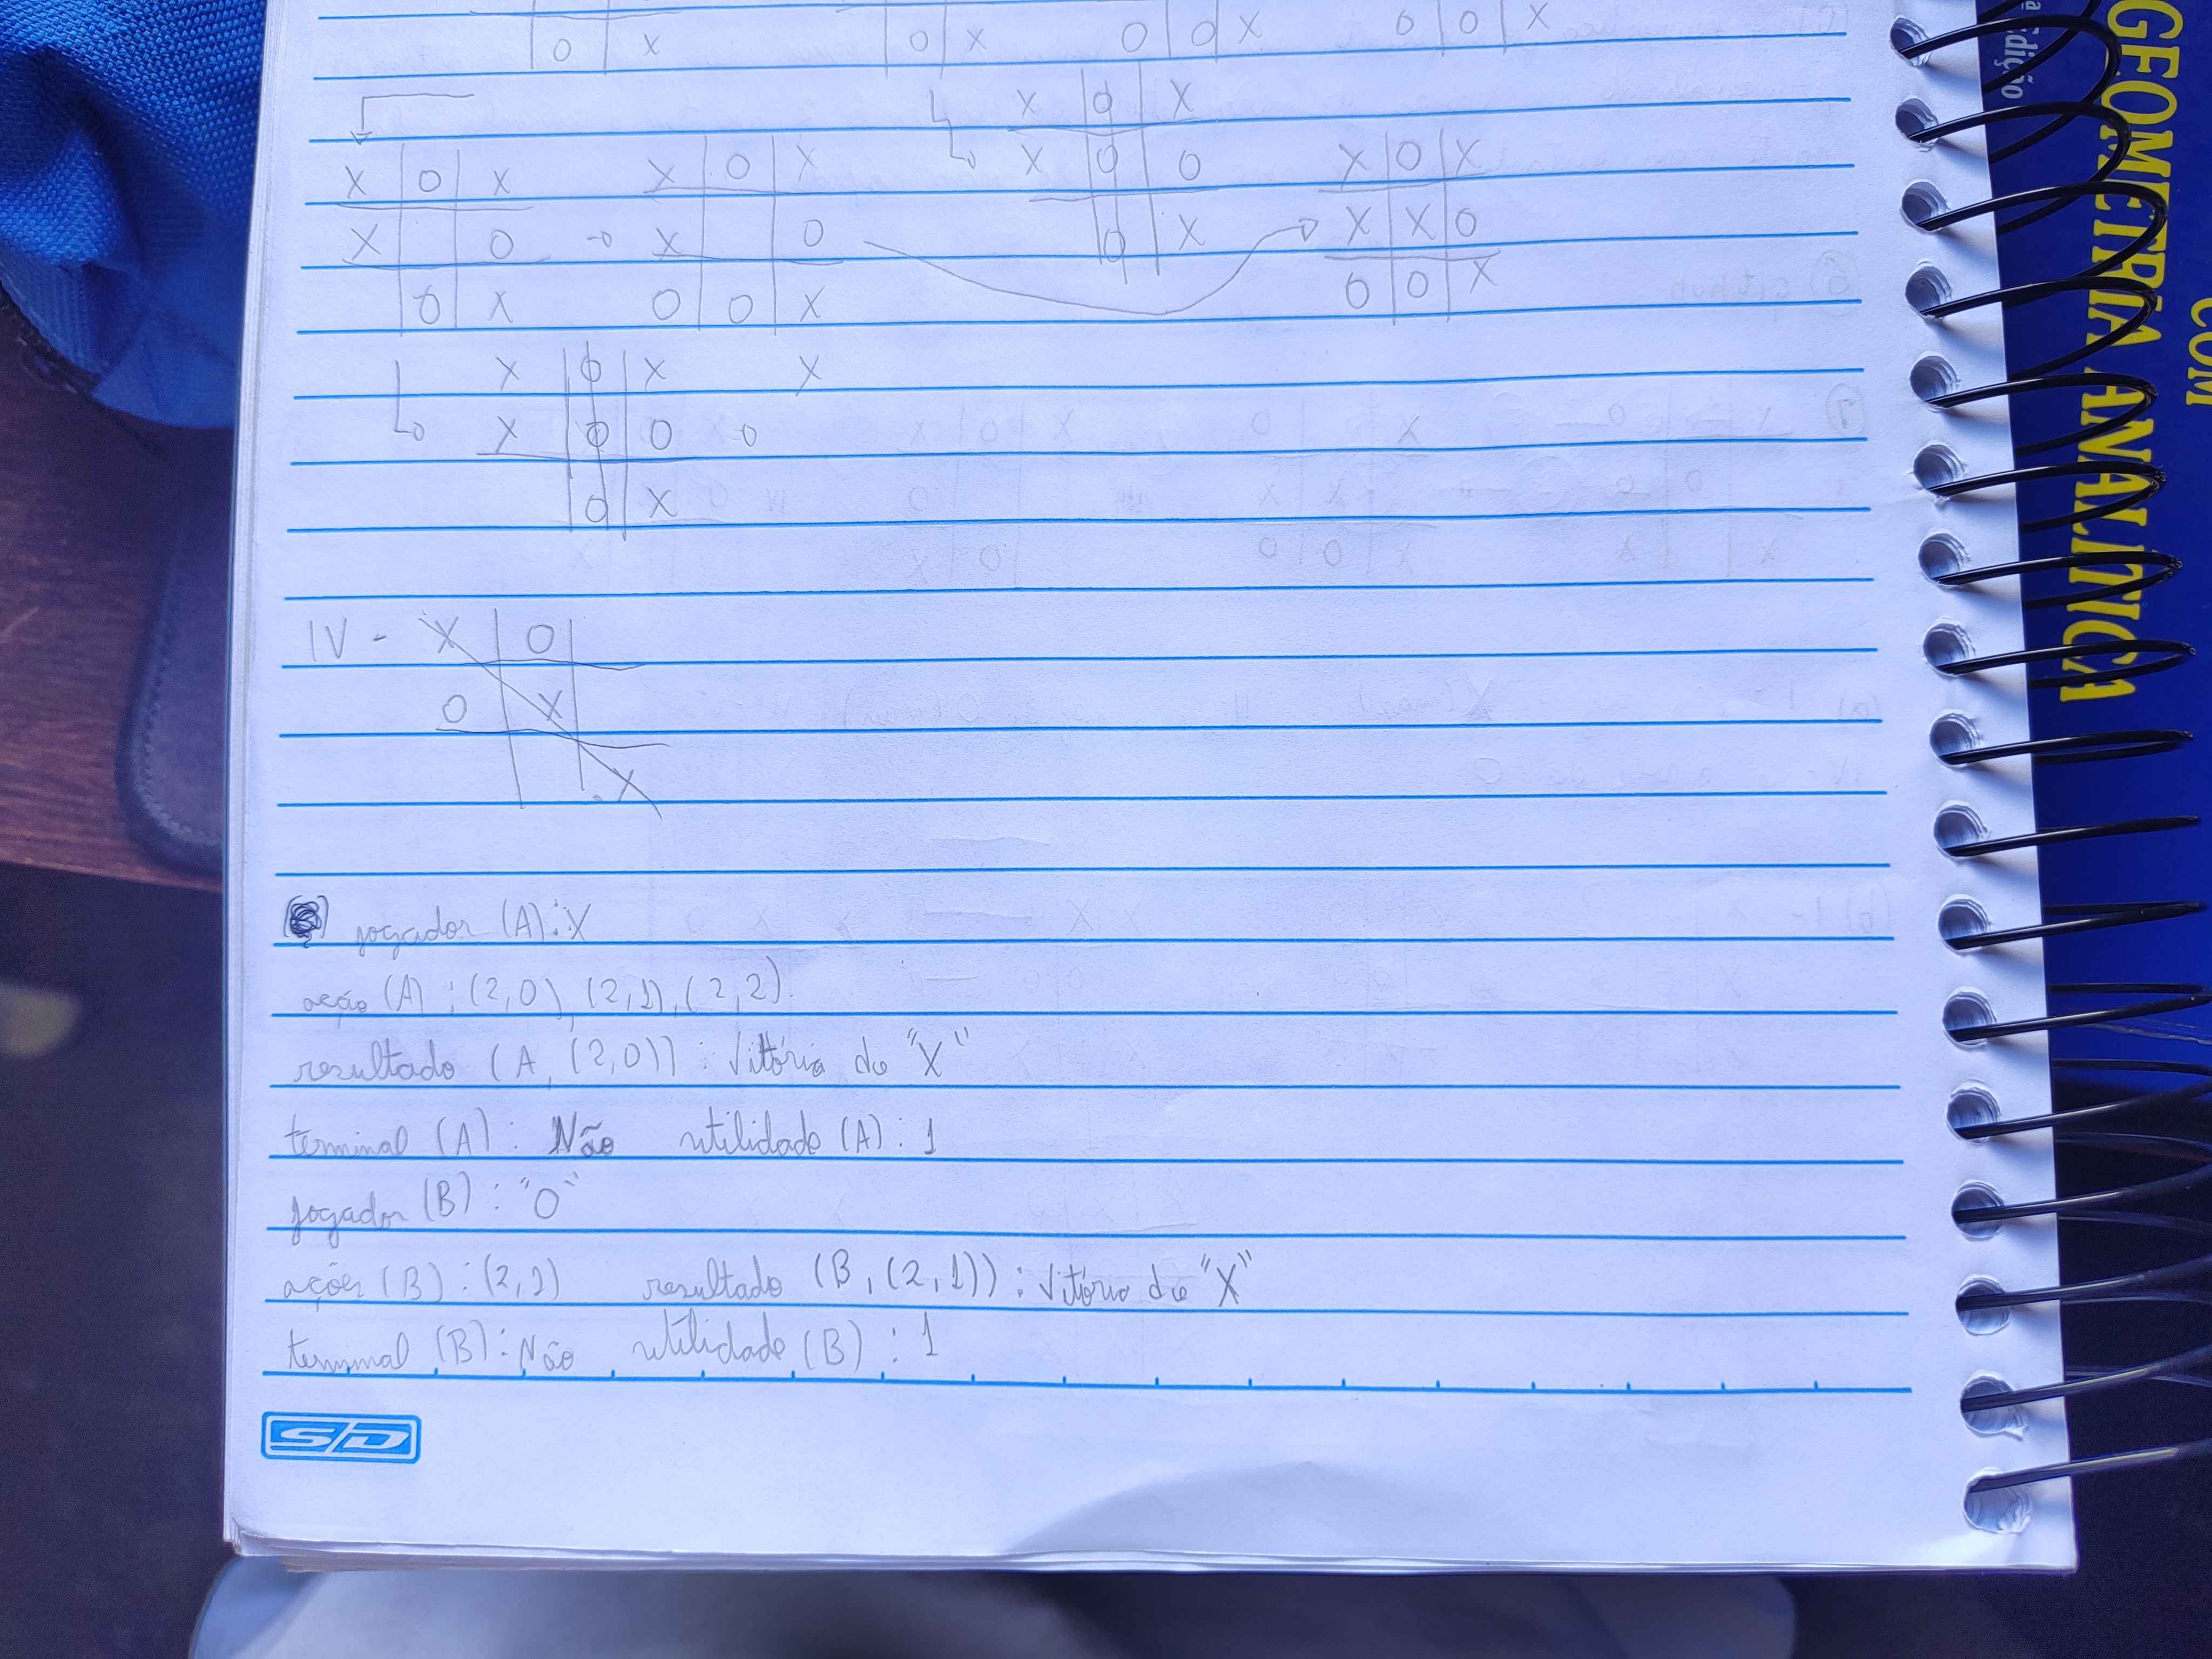 O X O X O O X O O X
X O X
X O X X O X X O O X O X
X O X O O X X X O
O X O O X O O X
X O X X
X O O
O X
IV - X O
O X
X
jogador (A): X
ação (A) : (2,0), (2,1), (2,2).
resultado (A, (2,0)) : Vitória do "X"
terminal (A) : Não utilidade (A) : 1
jogador (B) : "O"
ações (B) : (2,1) resultado (B, (2,1)) : Vitória do "X"
terminal (B) : Não utilidade (B) : 1
SD
ª Edição
GEOMETRIA ANALÍTICA
COM